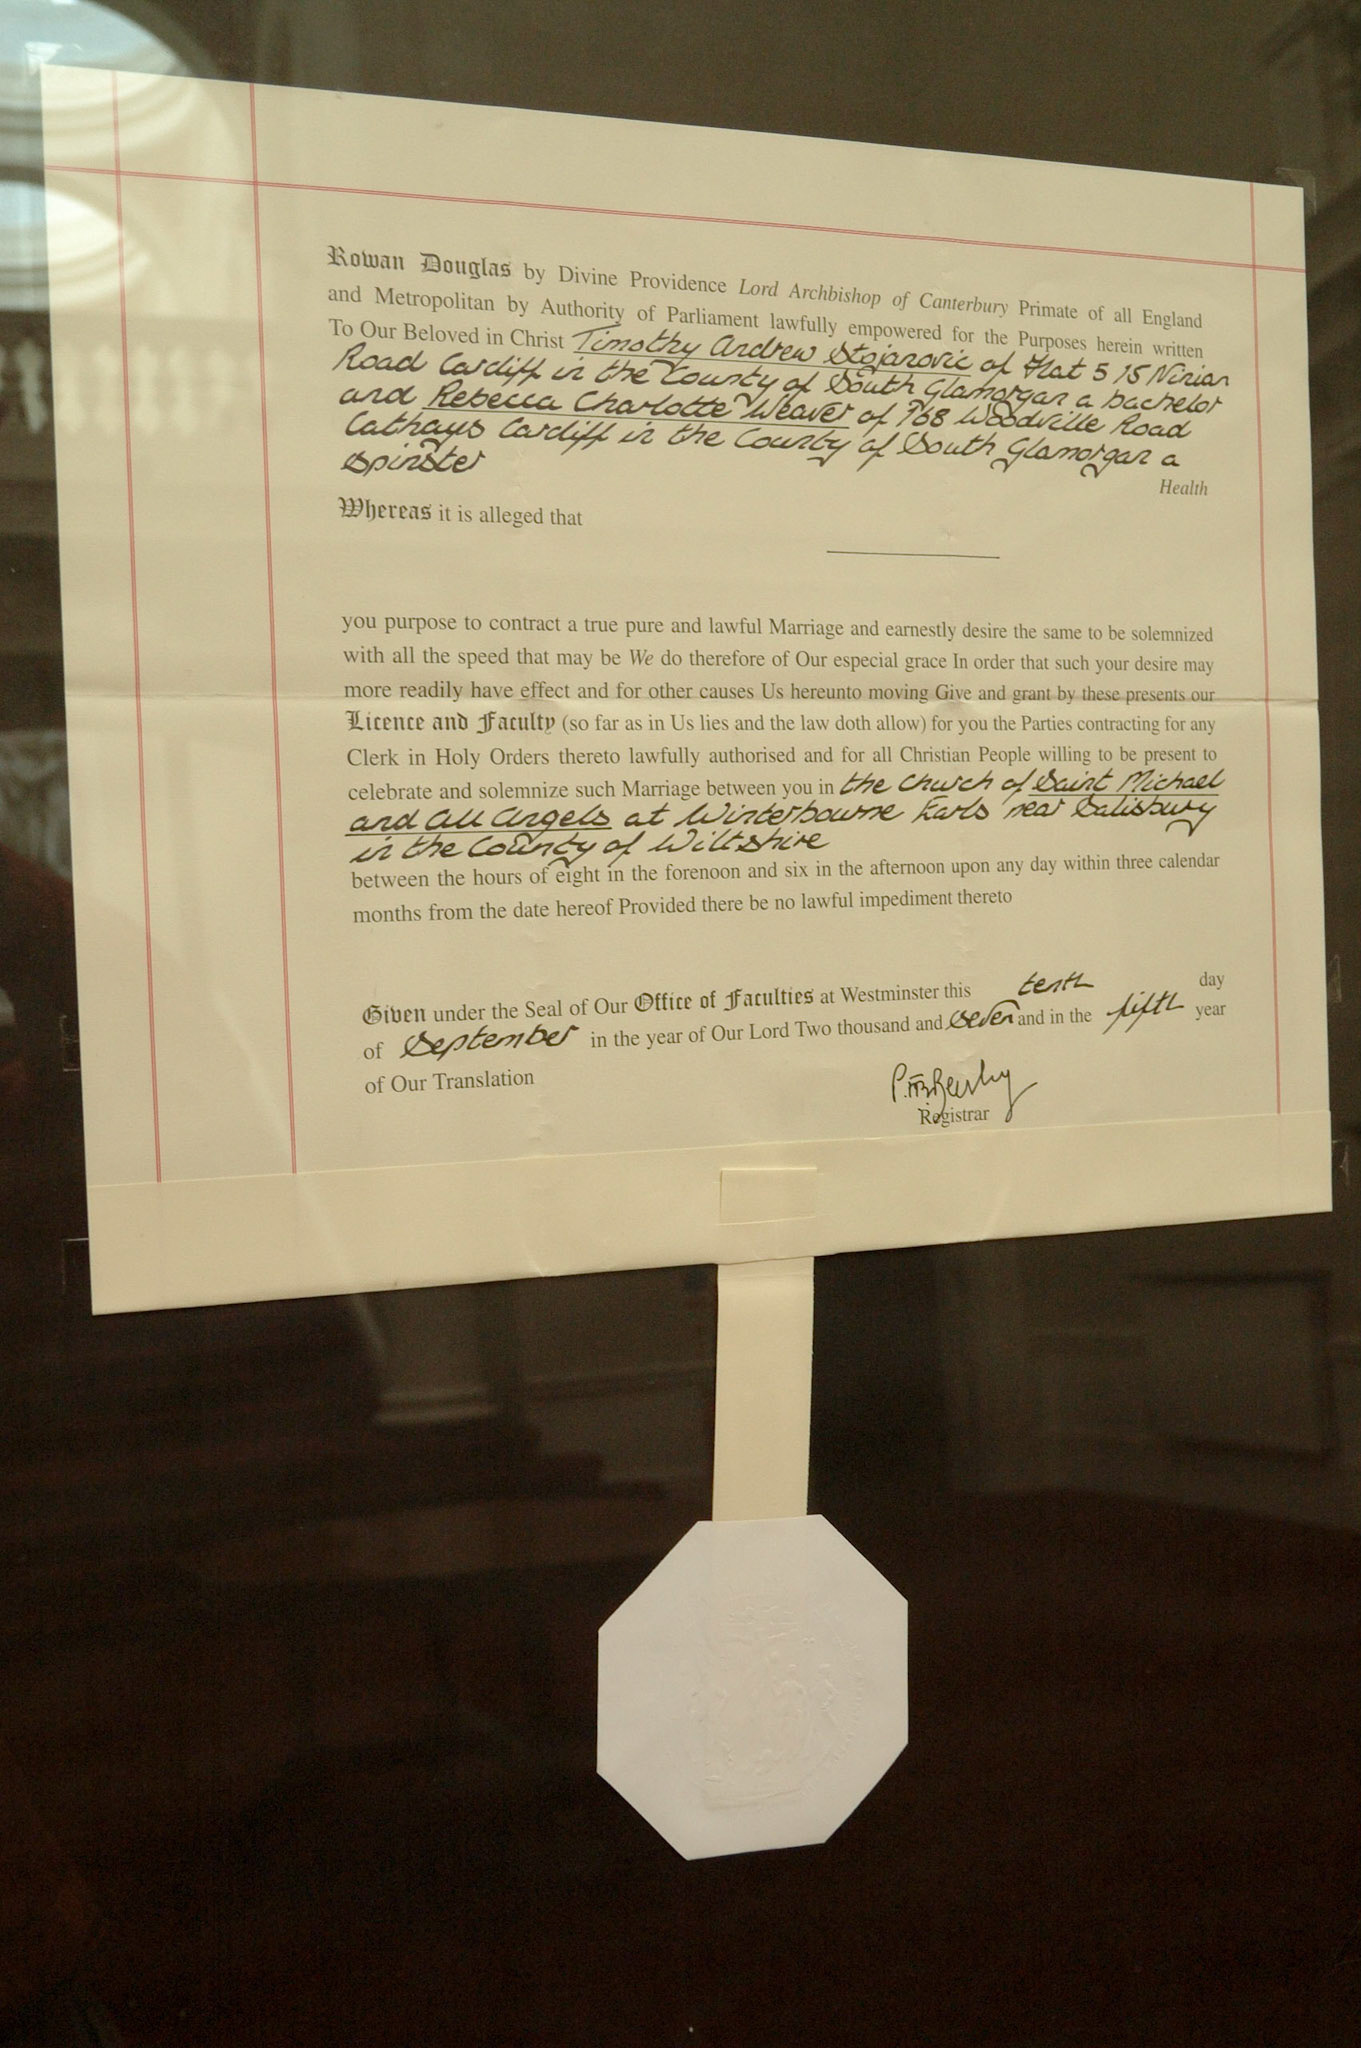 Rowan Douglas by Divine Providence Lord Archbishop of Canterbury Primate of all England
and Metropolitan by Authority of Parliament lawfully empowered for the Purposes herein written
To Our Beloved in Christ Timothy Andrew Stojanovic of Flat 5 15 Ninian
Road Cardiff in the County of South Glamorgan a bachelor
and Rebecca Charlotte Weaver of 768 Woodville Road
Cathays Cardiff in the County of South Glamorgan a
spinster
Health
Whereas it is alleged that
you purpose to contract a true pure and lawful Marriage and earnestly desire the same to be solemnized
with all the speed that may be We do therefore of Our especial grace In order that such your desire may
more readily have effect and for other causes Us hereunto moving Give and grant by these presents our
Licence and Faculty (so far as in Us lies and the law doth allow) for you the Parties contracting for any
Clerk in Holy Orders thereto lawfully authorised and for all Christian People willing to be present to
celebrate and solemnize such Marriage between you in the Church of Saint Michael
and All Angels at Winterbourne Earls near Salisbury
in the County of Wiltshire
between the hours of eight in the forenoon and six in the afternoon upon any day within three calendar
months from the date hereof Provided there be no lawful impediment thereto
Given under the Seal of Our Office of Faculties at Westminster this tenth day
of September in the year of Our Lord Two thousand and seven and in the fifth year
of Our Translation
Registrar